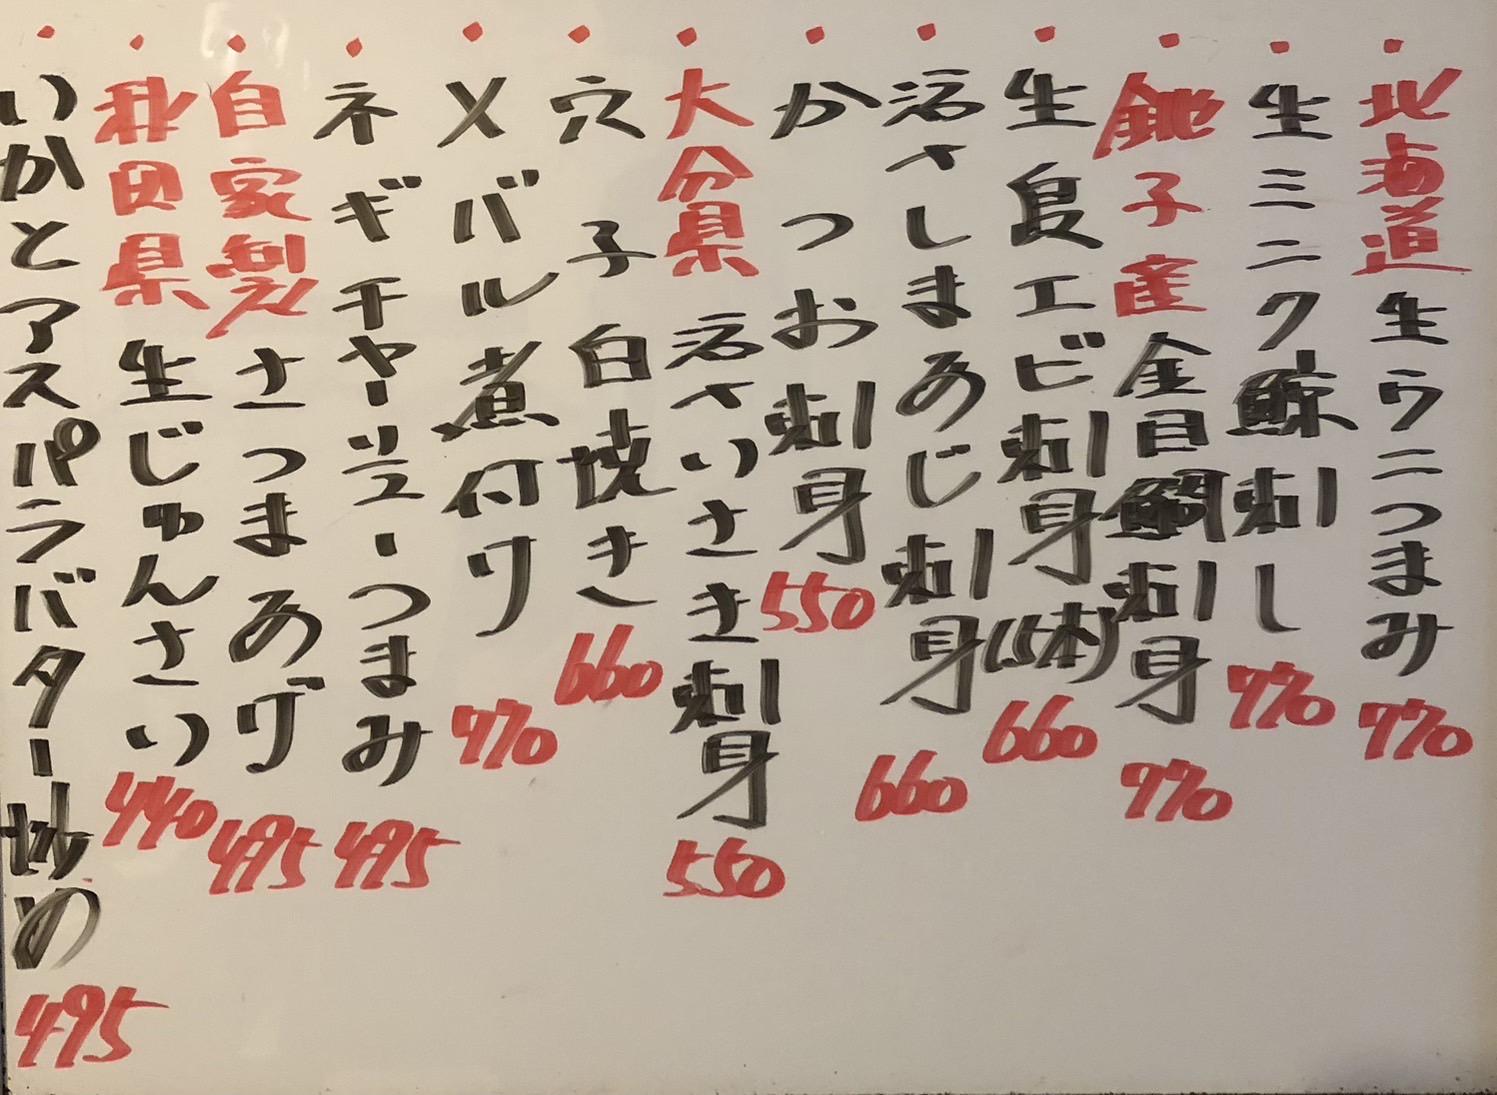 ・北海道生ウニつまみ770
・生ミンク鯨刺し770
・銚子産金目鯛刺身770
・生車エビ刺身(5本)660
・活〆しまあじ刺身660
・かつお刺身550
・大分県活〆いさき刺身550
・穴子白焼き660
・メバル煮付け770
・ネギチャーシューつまみ495
・自家製さつまあげ495
・秋田県生じゅんさい440
・いかとアスパラバター炒め495